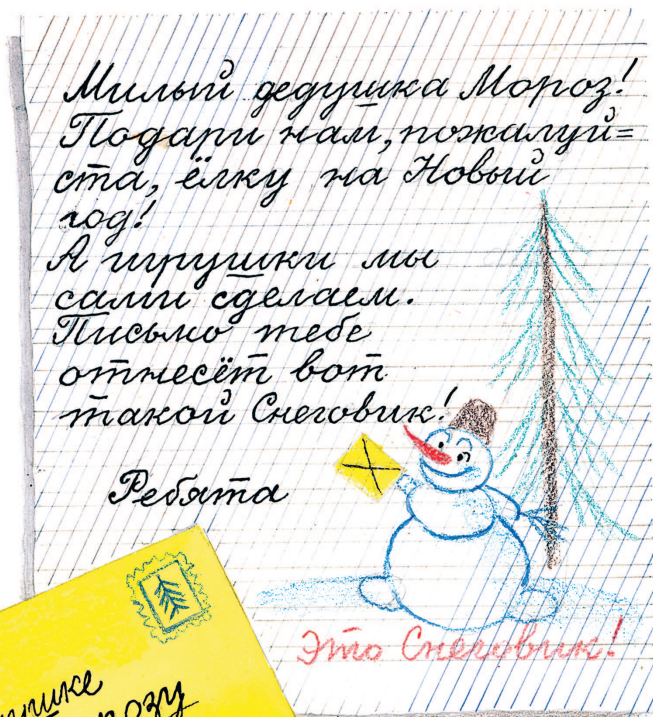 Милый дедушка Мороз!
Подари нам, пожалуй=
ста, ёлку на Новый
год!
А игрушки мы
сами сделаем.
Письмо тебе
отнесёт вот
такой Снеговик!
Ребята
Это Снеговик!